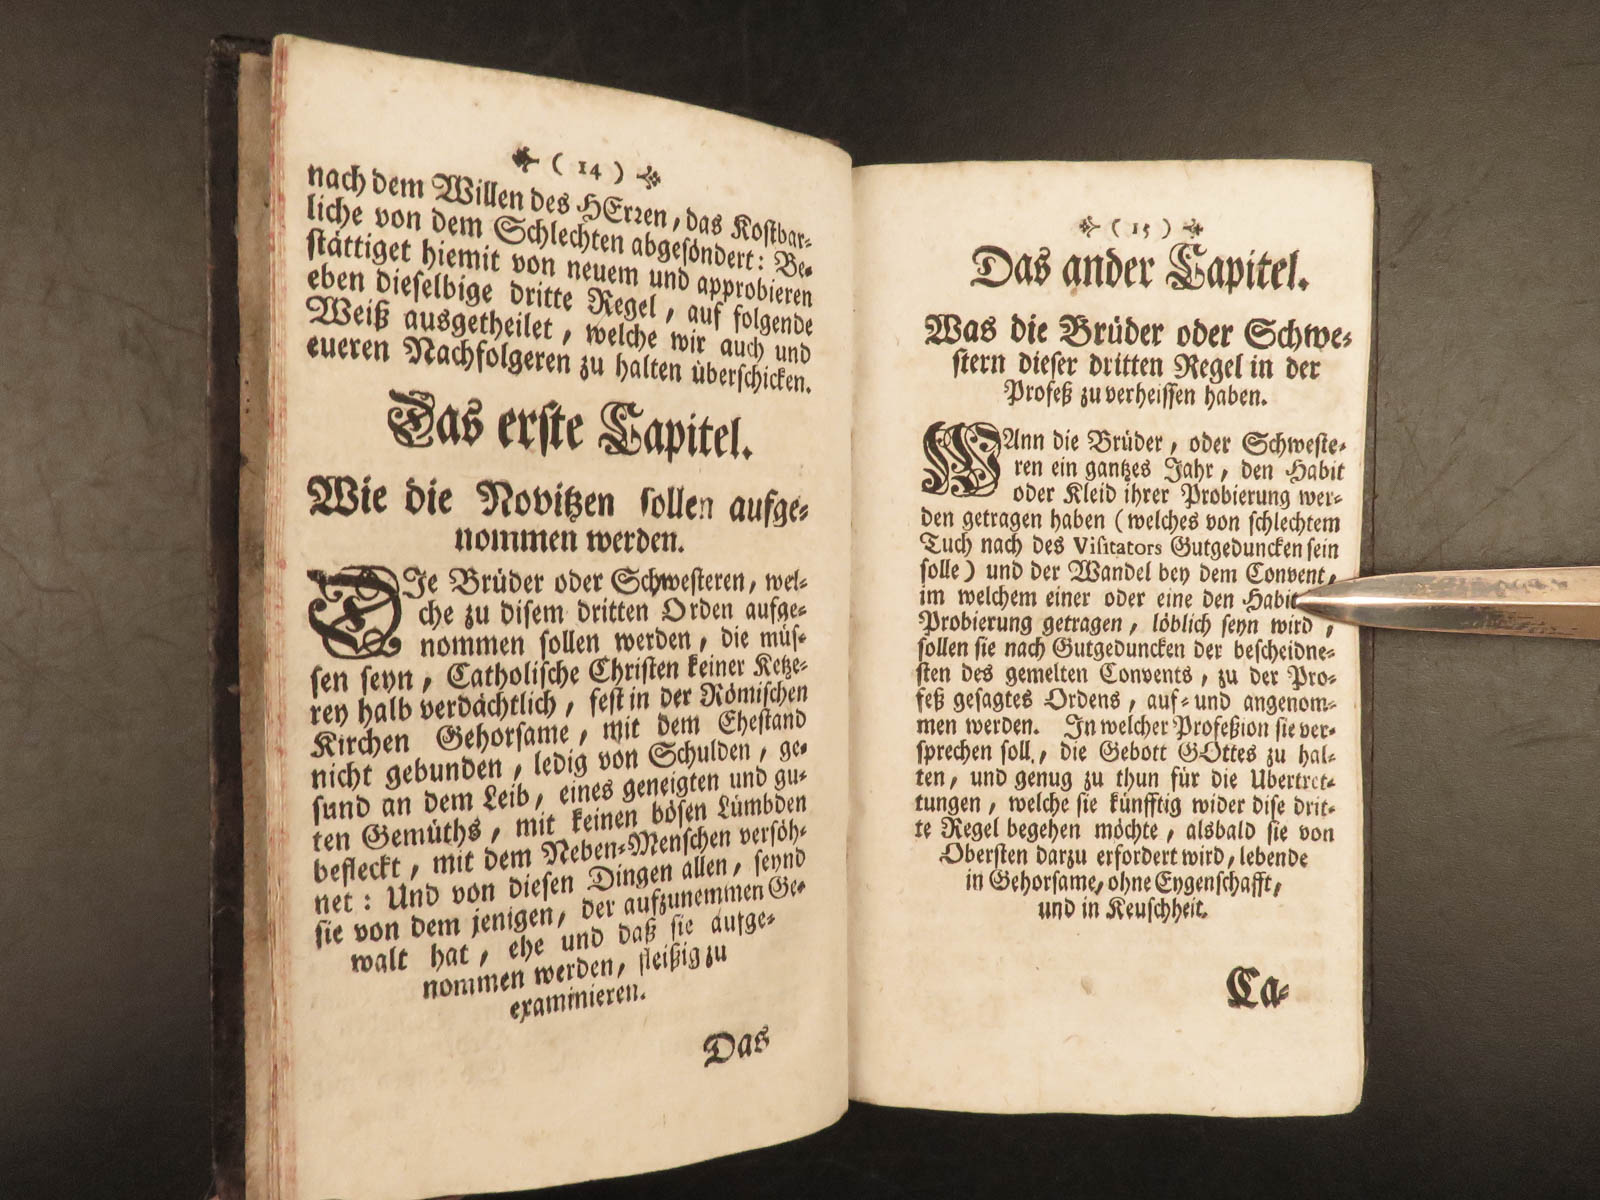 ( 14 )
nach dem Willen des HErren, das Kostbar-
liche von dem Schlechten abgesöndert: Be-
stättiget hiemit von neuem und approbieren
eben dieselbige dritte Regel, auf folgende
Weiß ausgetheilet, welche wir auch und
eueren Nachfolgeren zu halten überschicken.
Das erste Capitel.
Wie die Novitzen sollen aufge-
nommen werden.
DIe Brüder oder Schwesteren, wel-
che zu disem dritten Orden aufge-
nommen sollen werden, die müs-
sen seyn, Catholische Christen keiner Ketze-
rey halb verdächtlich, fest in der Römischen
Kirchen Gehorsame, mit dem Ehestand
nicht gebunden, ledig von Schulden, ge-
sund an dem Leib, eines geneigten und gu-
ten Gemüths, mit keinen bösen Lümbden
befleckt, mit dem Neben-Menschen versöh-
net: Und von diesen Dingen allen, seynd
sie von dem jenigen, der aufzunemmen Ge-
walt hat, ehe und daß sie aufge-
nommen werden, fleißig zu
examinieren.
Das
( 15 )
Das ander Capitel.
Was die Brüder oder Schwe-
stern dieser dritten Regel in der
Profeß zu verheissen haben.
WAnn die Brüder, oder Schweste-
ren ein gantzes Jahr, den Habit
oder Kleid ihrer Probierung wer-
den getragen haben (welches von schlechtem
Tuch nach des Visitators Gutgeduncken sein
solle) und der Wandel bey dem Convent,
im welchem einer oder eine den Habit
Probierung getragen, löblich seyn wird,
sollen sie nach Gutgeduncken der bescheidne-
sten des gemelten Convents, zu der Pro-
feß gesagtes Ordens, auf- und angenom-
men werden. In welcher Profeßion sie ver-
sprechen soll, die Gebott GOttes zu hal-
ten, und genug zu thun für die Ubertret-
tungen, welche sie künfftig wider dise drit-
te Regel begehen möchte, alsbald sie von
Obersten darzu erfordert wird, lebende
in Gehorsame, ohne Eygenschafft,
und in Keuschheit.
Ca-